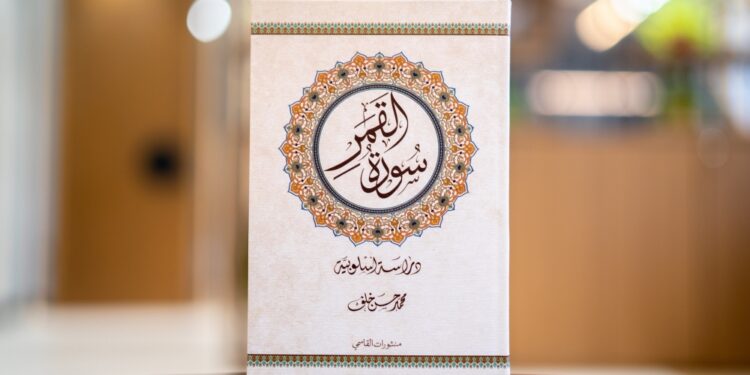 سورة القمر
دراسة أسلوبية
محمد حسن خلف
منشورات القاسمي